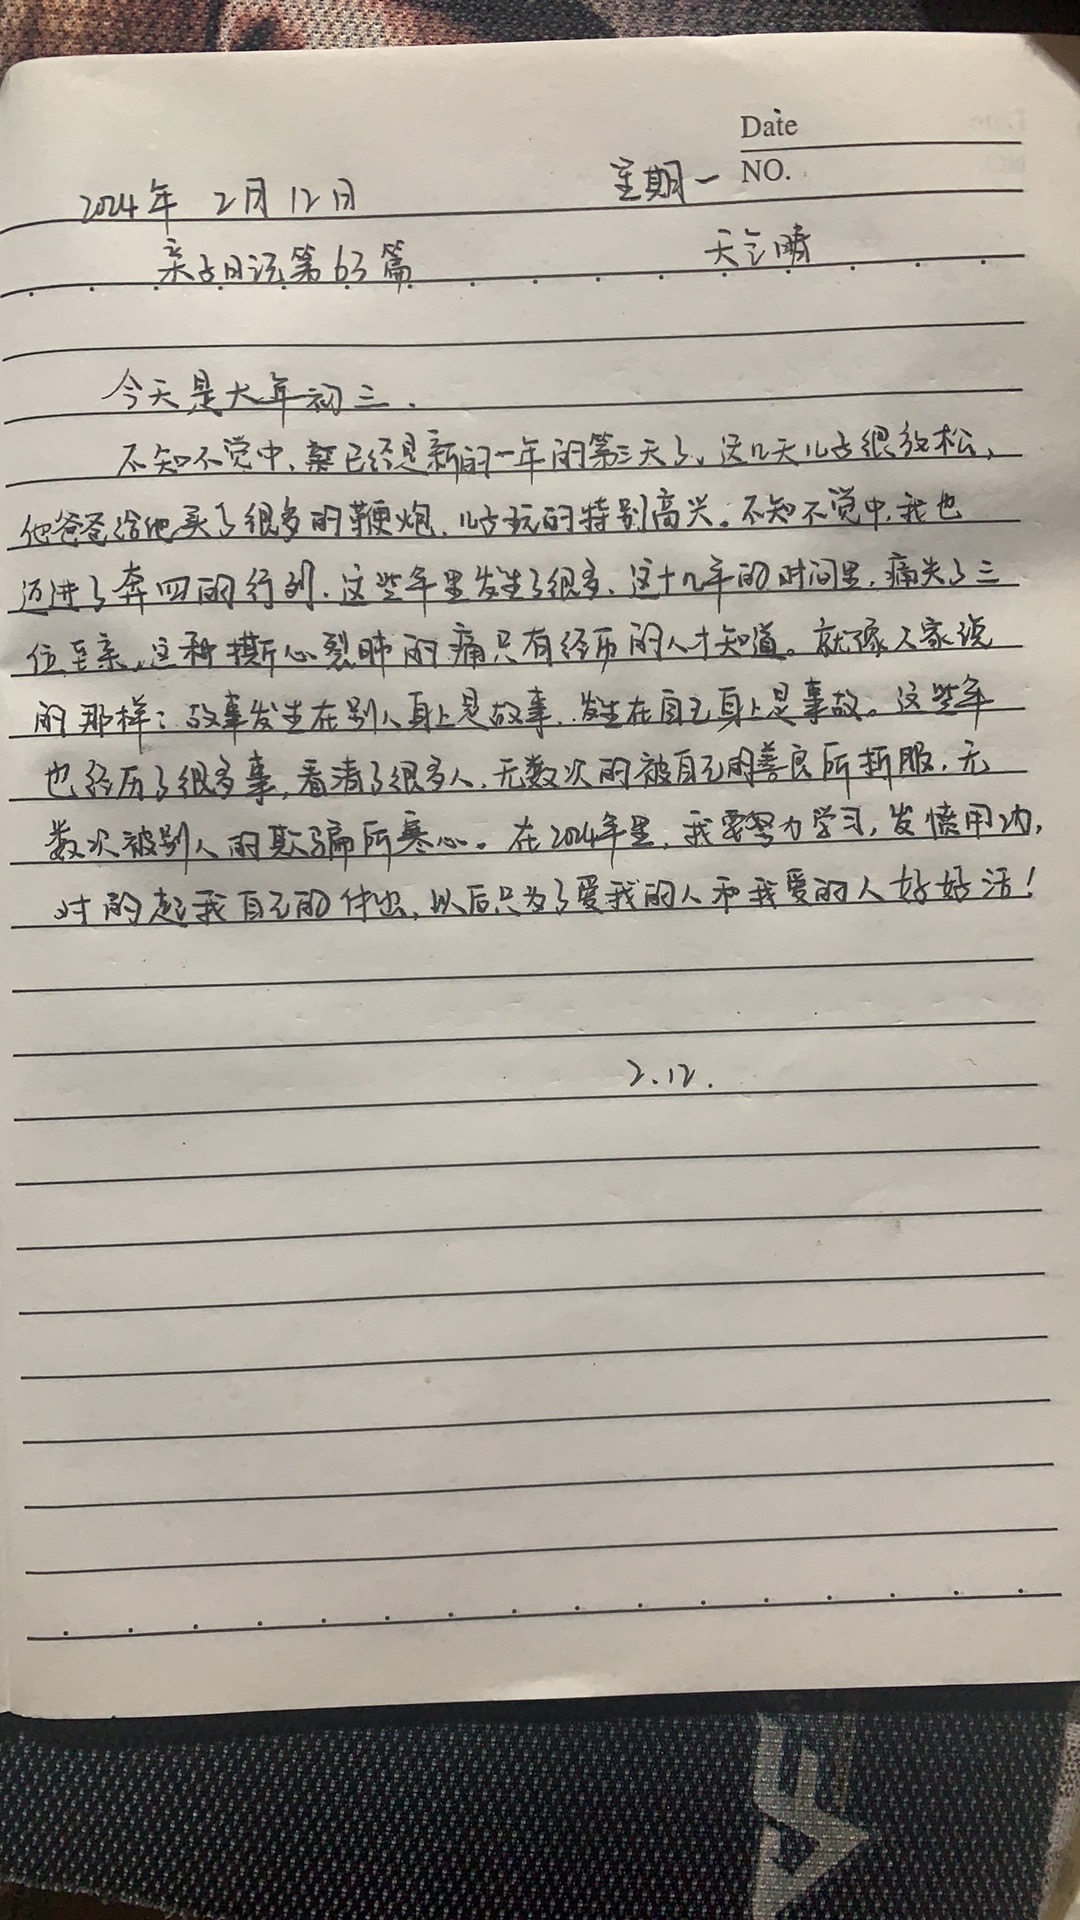 Date
NO.
2024年 2月12日 星期一
亲子日记第63篇 天气晴
今天是大年初三.
不知不觉中、已经是新的一年的第三天了、这几天儿子很放松,
他爸爸给他买了很多的鞭炮,儿子玩的特别高兴。不知不觉中,我也
迈进了奔四的行列.这些年里发生了很多、这十几年的时间里,痛失了三
位至亲,这种撕心裂肺的痛只有经历的人才知道。就像人家说
的那样:故事发生在别人身上是故事,发生在自己身上是事故。这些年
也经历了很多事,看清了很多人,无数次的被自己的善良所折服,无
数次被别人的欺骗所寒心。在2024年里,我要努力学习,发愤用功,
对的起我自己的付出,以后只为了爱我的人和我爱的人好好活!
2.12.